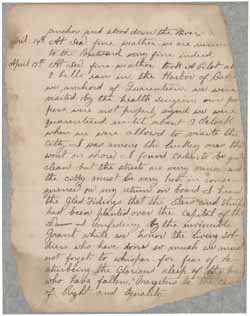 anchor and stood down the River
April 14th At Sea fine weather we are nearing
to the Westward very fine indeed
April 15th At Sea fine weather took a Pilot at
2 bells ran in the Harbor of
we anchord off Quarantine we were
visited by the health surgeon our pa
pers were not signed we were
quarantined until about 3 Oclock
when we were allowed to visite the
city I was among the Luckey ones that
went on shore I found to be
clean but the streets are very narrow
the citty must be very
on my return on board I heard
the Glad Tidings that the Stars and Stripes
had been planted over the capital of the
Confedircy by the invincible
Grant while we honor the living sol
diers who have done so much we must
not forget to whisper for fear of
sturbing the Glorious sleep of
who have fallen Mayrters to the
of Right and Equality